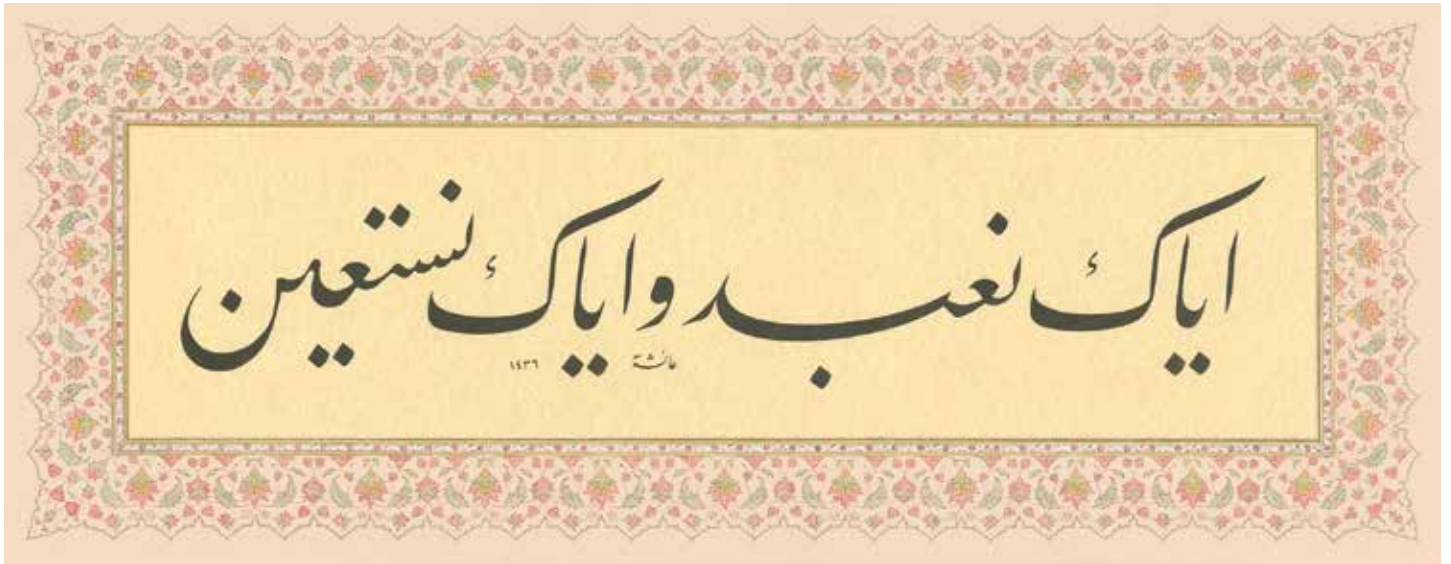 اياك نعبد واياك نستعين
عائشة ١٤٣٦